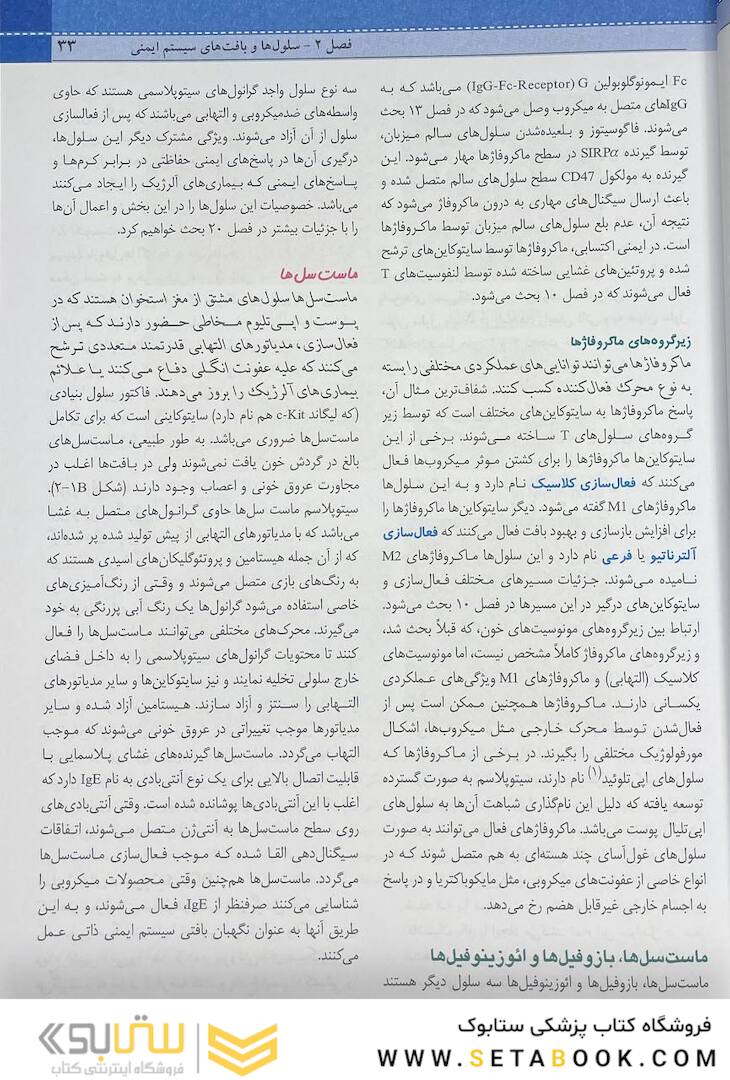 فصل ۲ – سلول‌ها و بافت‌های سیستم ایمنی
۳۳
Fc ایمونوگلوبولین G (IgG-Fc-Receptor) می‌باشد که به
IgGهای متصل به میکروب وصل می‌شود که در فصل ۱۳ بحث
می‌شوند. فاگوسیتوز و بلعیده‌شدن سلول‌های سالم میزبان،
توسط گیرنده SIRPα در سطح ماکروفاژها مهار می‌شود. این
گیرنده به مولکول CD47 سطح سلول‌های سالم متصل شده و
باعث ارسال سیگنال‌های مهاری به درون ماکروفاژ می‌شود که
نتیجه آن، عدم بلع سلول‌های سالم میزبان توسط ماکروفاژها
است. در ایمنی اکتسابی، ماکروفاژها توسط سایتوکاین‌های ترشح
شده و پروتئین‌های غشایی ساخته شده توسط لنفوسیت‌های T
فعال می‌شوند که در فصل ۱۰ بحث می‌شود.
زیرگروه‌های ماکروفاژها
ماکروفاژها می‌توانند توانایی‌های عملکردی مختلفی را بسته
به نوع محرک فعال‌کننده کسب کنند. شفاف‌ترین مثال آن،
پاسخ ماکروفاژها به سایتوکاین‌های مختلف است که توسط زیر
گروه‌های سلول‌های T ساخته می‌شوند. برخی از این
سایتوکاین‌ها ماکروفاژها را برای کشتن موثر میکروب‌ها فعال
می‌کنند که فعال‌سازی کلاسیک نام دارد و به این سلول‌ها
ماکروفاژهای M1 گفته می‌شود. دیگر سایتوکاین‌ها ماکروفاژها را
برای افزایش بازسازی و بهبود بافت فعال می‌کنند که فعال‌سازی
آلترناتیو یا فرعی نام دارد و این سلول‌ها ماکروفاژهای M2
نامیده می‌شوند. جزئیات مسیرهای مختلف فعال‌سازی و
سایتوکاین‌های درگیر در این مسیرها در فصل ۱۰ بحث می‌شود.
ارتباط بین زیرگروه‌های مونوسیت‌های خون، که قبلاً بحث شد،
و زیرگروه‌های ماکروفاژ کاملاً مشخص نیست، اما مونوسیت‌های
کلاسیک (التهابی) و ماکروفاژهای M1 ویژگی‌های عملکردی
یکسانی دارند. ماکروفاژها همچنین ممکن است پس از
فعال‌شدن توسط محرک خارجی مثل میکروب‌ها، اشکال
مورفولوژیک مختلفی را بگیرند. در برخی از ماکروفاژها که
سلول‌های اپی‌تلوئید(۱) نام دارند، سیتوپلاسم به صورت گسترده
توسعه یافته که دلیل این نام‌گذاری شباهت آن‌ها به سلول‌های
اپی‌تلیال پوست می‌باشد. ماکروفاژهای فعال می‌توانند به صورت
سلول‌های غول‌آسای چند هسته‌ای به هم متصل شوند که در
انواع خاصی از عفونت‌های میکروبی، مثل مایکوباکتریا و در پاسخ
به اجسام خارجی غیرقابل هضم رخ می‌دهد.
ماست‌سل‌ها، بازوفیل‌ها و ائوزینوفیل‌ها
ماست‌سل‌ها، بازوفیل‌ها و ائوزینوفیل‌ها سه سلول دیگر هستند
سه نوع سلول واجد گرانول‌های سیتوپلاسمی هستند که حاوی
واسطه‌های ضدمیکروبی و التهابی می‌باشند که پس از فعالسازی
سلول از آن آزاد می‌شوند. ویژگی مشترک دیگر این سلول‌ها،
درگیری آن‌ها در پاسخ‌های ایمنی حفاظتی در برابر کرم‌ها و
پاسخ‌های ایمنی که بیماری‌های آلرژیک را ایجاد می‌کنند
می‌باشد. خصوصیات این سلول‌ها را در این بخش و اعمال آن‌ها
را با جزئیات بیشتر در فصل ۲۰ بحث خواهیم کرد.
ماست‌سل‌ها
ماست‌سل‌ها سلول‌های مشتق از مغز استخوان هستند که در
پوست و اپی‌تلیوم مخاطی حضور دارند که پس از
فعال‌سازی، مدیاتورهای التهابی قدرتمند متعددی ترشح
می‌کنند که علیه عفونت انگلی دفاع می‌کنند یا علائم
بیماری‌های آلرژیک را بروز می‌دهند. فاکتور سلول بنیادی
(که لیگاند c-Kit هم نام دارد) سایتوکاینی است که برای تکامل
ماست‌سل‌ها ضروری می‌باشد. به طور طبیعی، ماست‌سل‌های
بالغ در گردش خون یافت نمی‌شوند ولی در بافت‌ها اغلب در
مجاورت عروق خونی و اعصاب وجود دارند (شکل ۱B-۲).
سیتوپلاسم ماست سل‌ها حاوی گرانول‌های متصل به غشا
می‌باشد که با مدیاتورهای التهابی از پیش تولید شده پر شده‌اند،
که از آن جمله هیستامین و پروتئوگلیکان‌های اسیدی هستند که
به رنگ‌های بازی متصل می‌شوند و وقتی از رنگ‌آمیزی‌های
خاصی استفاده می‌شود گرانول‌ها یک رنگ آبی پررنگی به خود
می‌گیرند. محرک‌های مختلفی می‌توانند ماست‌سل‌ها را فعال
کنند تا محتویات گرانول‌های سیتوپلاسمی را به داخل فضای
خارج سلولی تخلیه نمایند و نیز سایتوکاین‌ها و سایر مدیاتورهای
التهابی را سنتز و آزاد سازند. هیستامین آزاد شده و سایر
مدیاتورها موجب تغییراتی در عروق خونی می‌شوند که موجب
التهاب می‌گردد. ماست‌سل‌ها گیرنده‌های غشای پلاسمایی با
قابلیت اتصال بالایی برای یک نوع آنتی‌بادی به نام IgE دارد که
اغلب با این آنتی‌بادی‌ها پوشانده شده است. وقتی آنتی‌بادی‌های
روی سطح ماست‌سل‌ها به آنتی‌ژن متصل می‌شوند، اتفاقات
سیگنال‌دهی القا شده که موجب فعال‌سازی ماست‌سل‌ها
می‌گردد. ماست‌سل‌ها هم‌چنین وقتی محصولات میکروبی را
شناسایی می‌کنند صرفنظر از IgE، فعال می‌شوند، و به این
طریق آنها به عنوان نگهبان بافتی سیستم ایمنی ذاتی عمل
می‌کنند.
فروشگاه کتاب پزشکی ستابوک
WWW.SETABOOK.COM
ستابوک
فروشگاه اینترنتی کتاب